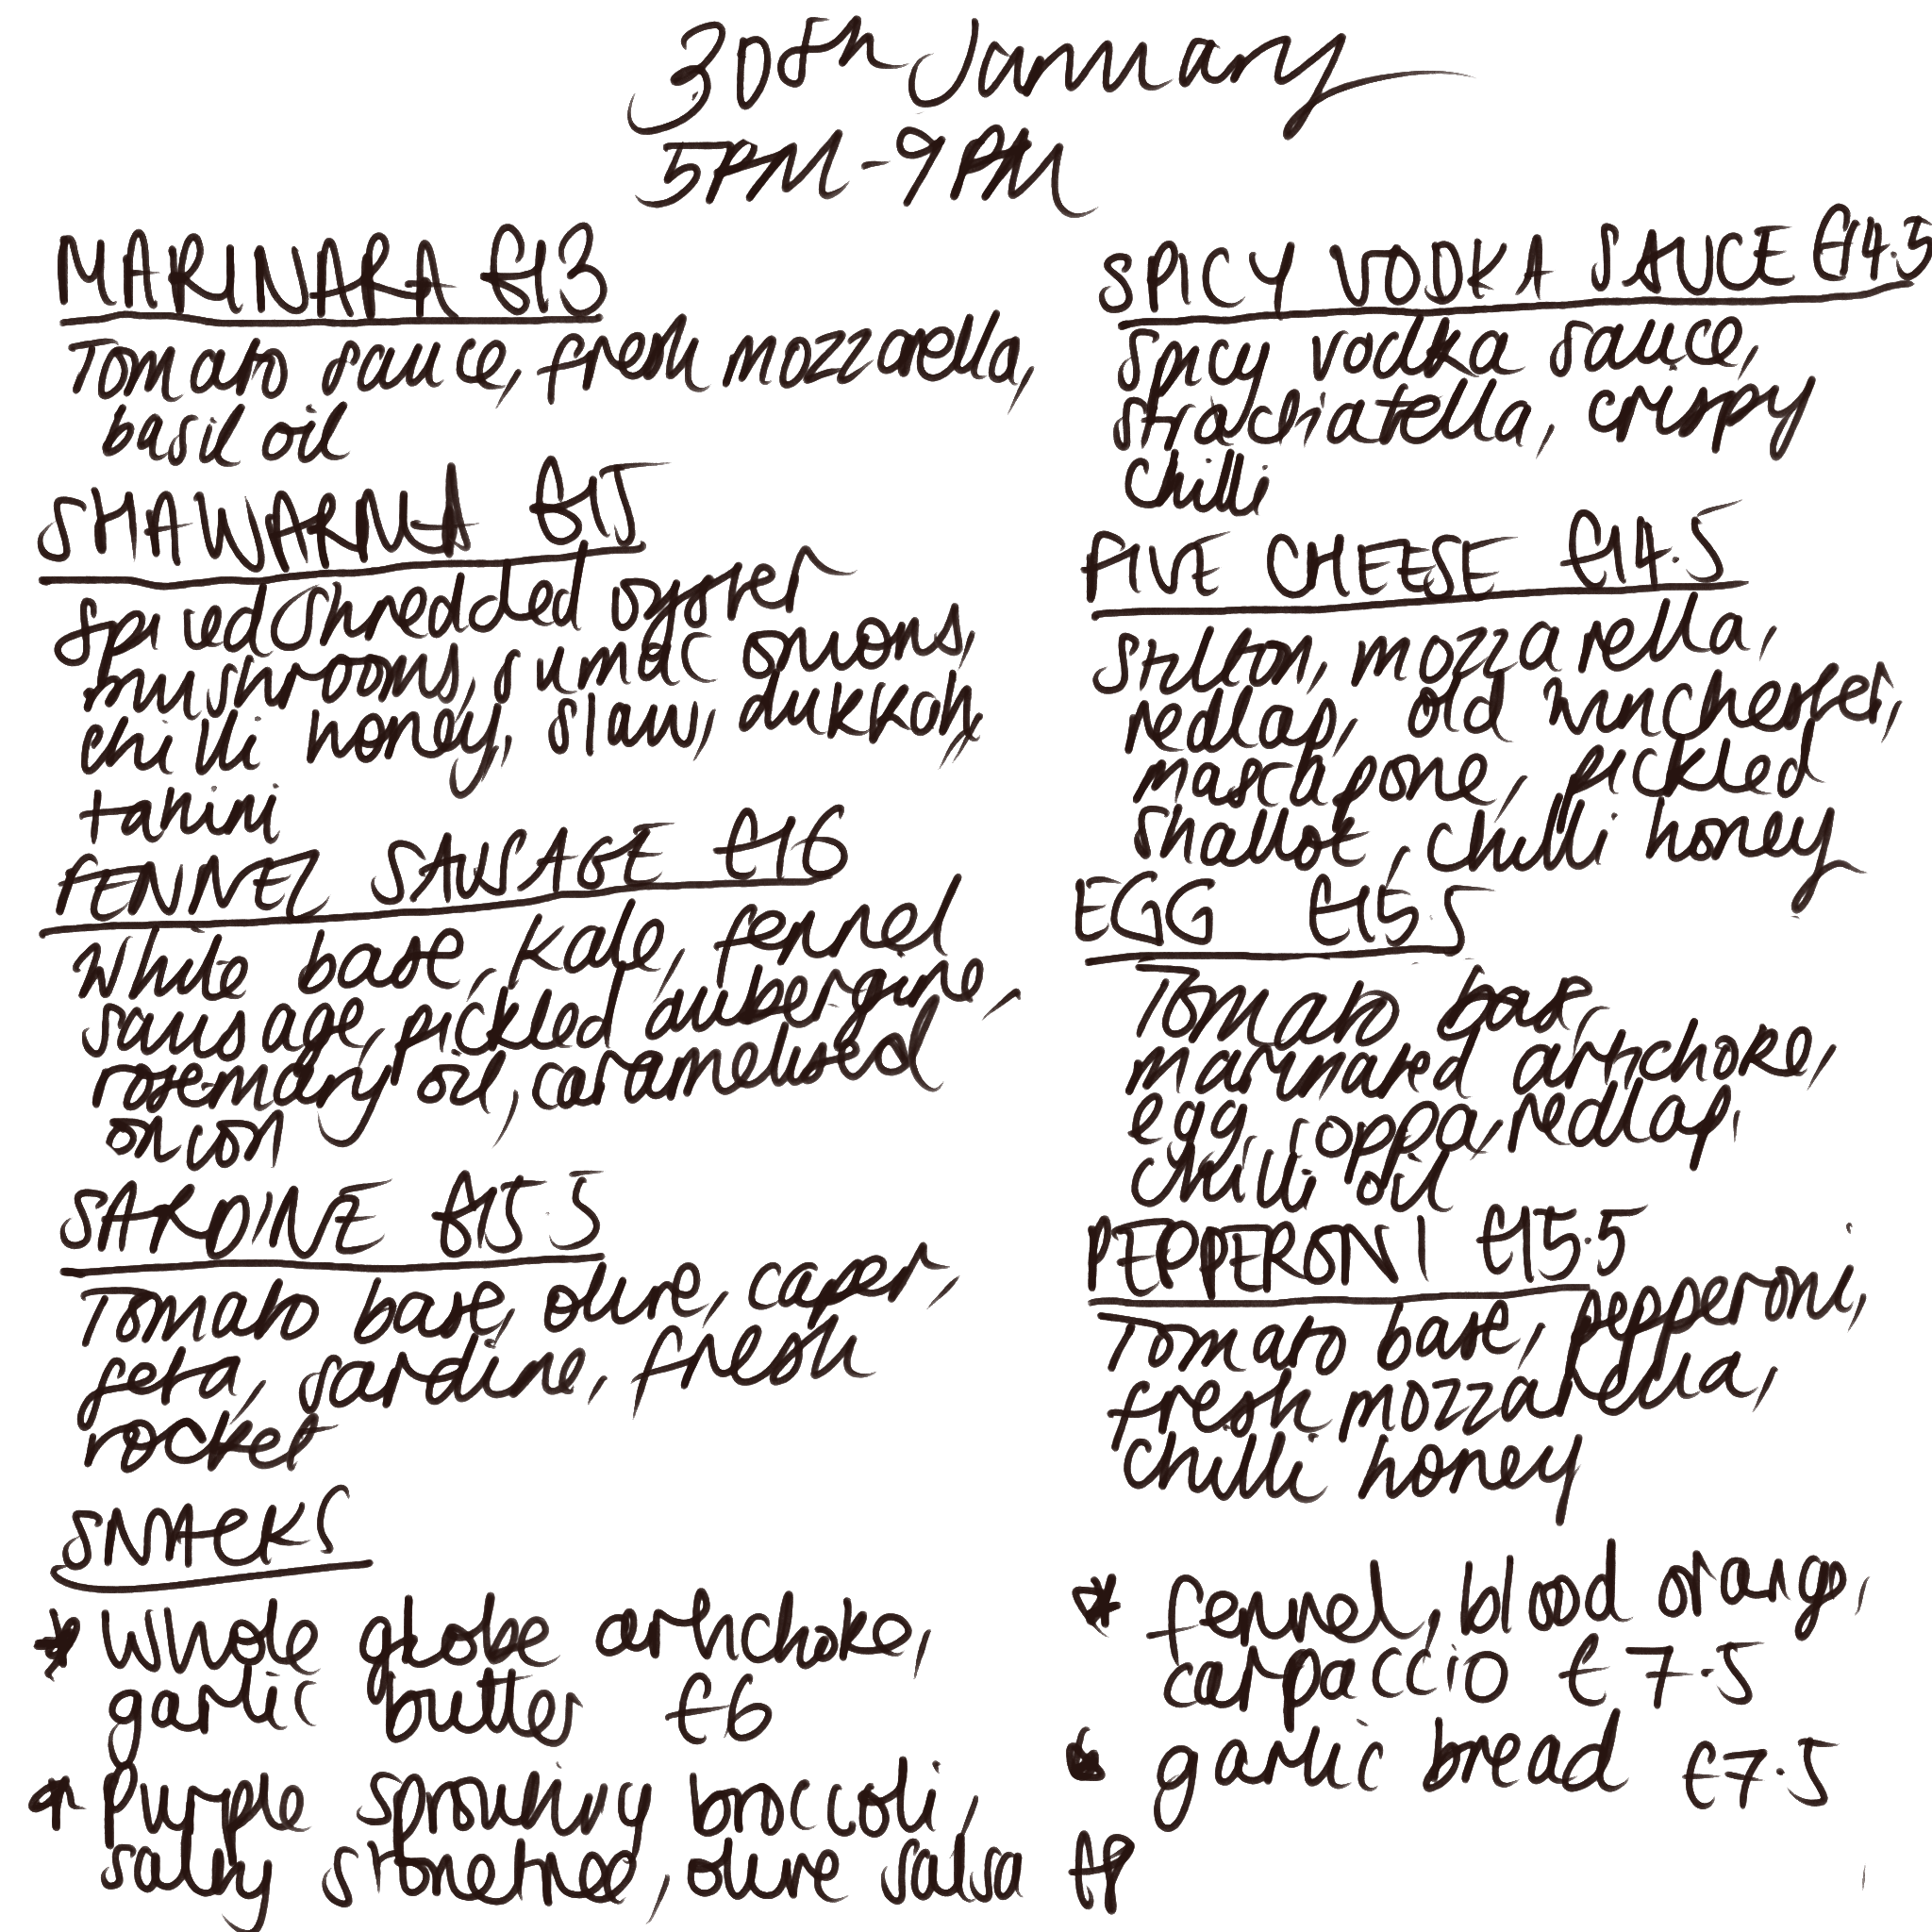 30th January
5PM-9PM
MARINARA £13
Tomato sauce, fresh mozzarella,
basil oil
SHAWARMA £15
Spiced shredded oyster
mushrooms, sumac onions,
chilli honey, slaw, dukkah,
tahini
FENNEL SAUSAGE £16
White base, kale, fennel
sausage, pickled aubergine,
rosemary oil, caramelised
onion
SARDINE £15.5
Tomato base, olive, caper,
feta, sardine, fresh
rocket
SPICY VODKA SAUCE £14.5
Spicy vodka sauce,
strachiatella, crispy
chilli
FIVE CHEESE £14.5
Stilton, mozzarella,
redlap, old winchester,
mascapone, pickled
shallot, chilli honey
EGG £15.5
Tomato base
marinated artichoke,
egg, coppa, redlap,
chilli oil
PEPPERONI £15.5
Tomato base, pepperoni,
fresh mozzarella,
chilli honey
SNACKS
* Whole globe artichoke,
garlic butter £6
* Purple sprouting broccoli,
salty stonetree, olive salsa
* fennel, blood orange,
carpaccio £7.5
* garlic bread £7.5